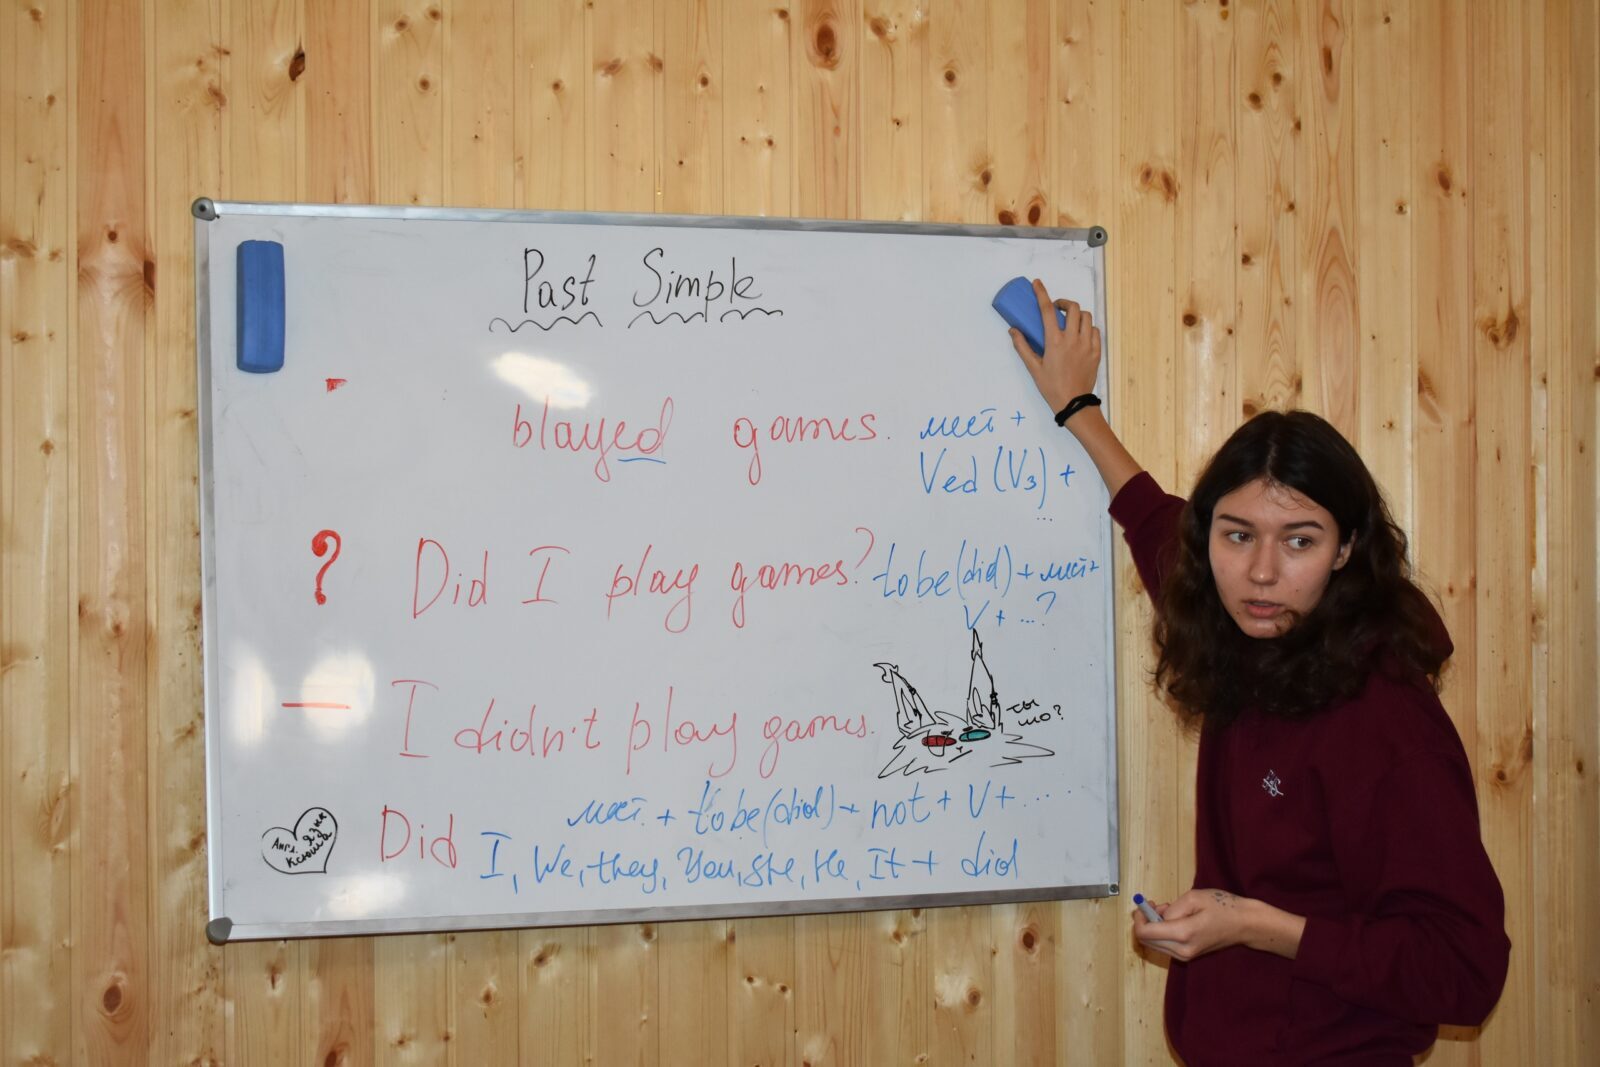 Past Simple
blayed games. мест +
Ved (V3) +
...
? Did I play games? to be (did) + мест +
V + ...?
— I didn't play games.
ты
шо?
мест. + to be (did) + not + V + ....
Did I, We, they, You, She, He, It + did
Англ. язык
Ксюша